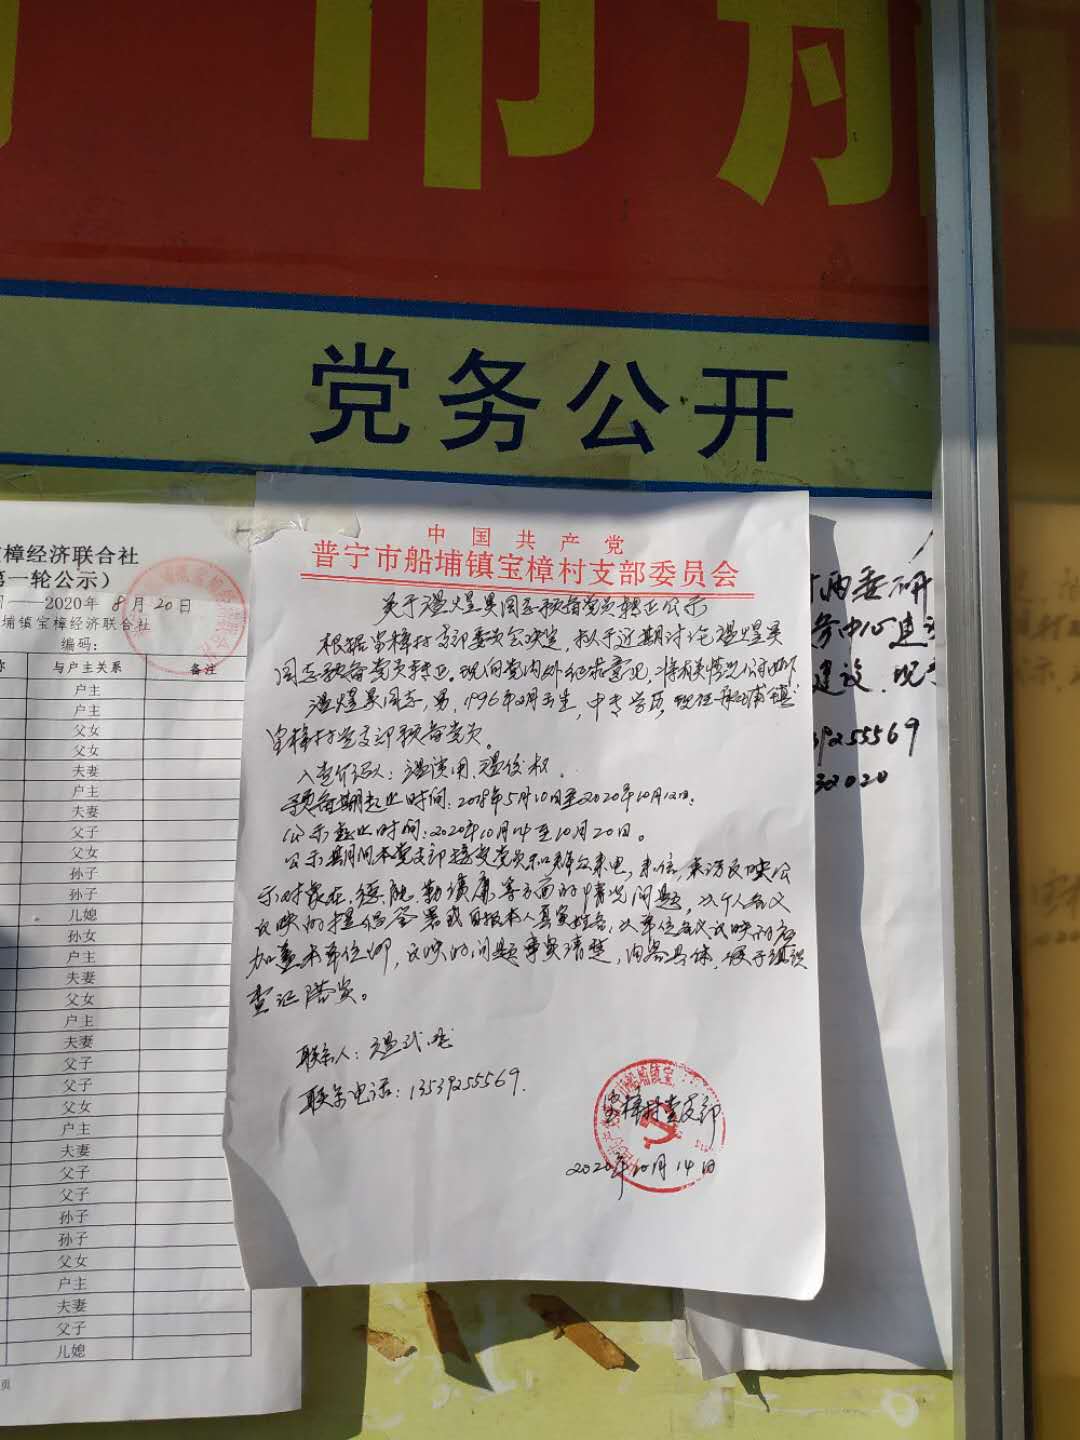 市船
党务公开
中国共产党
普宁市船埔镇宝樟村支部委员会
关于温煜昊同志预备党员转正公示
根据宝樟村支部委员会决定，拟于近期讨论温煜昊
同志预备党员转正。现向党内外征求意见，将有关情况公示如下
温煜昊同志，男，1996年2月出生，中专学历，现任船埔镇
宝樟村党支部预备党员。
入党介绍人：温 用、温俊权。
预备期起止时间：2018年5月10日至2020年10月12日。
公示起止时间：2020年10月14至10月20日。
公示期间本党支部接受党员和群众来电，来信，来访反映公
示对象在德、能、勤、绩、廉等方面的情况问题，以个人名义
反映的提倡签署或自报本人真实姓名，以单位名义反映的应
加盖本单位 ，反映的问题事实清楚，内容具体，便于组织
查证落实。
联系人：温
联系电话：13539255569.
宝樟村党支部
2020年10月14日
樟经济联合社
第一轮公示）
——2020年8月20日
埔镇宝樟经济联合社
编码：
称 与户主关系 备注
户主
户主
父女
父女
夫妻
户主
夫妻
父子
父女
孙子
孙子
儿媳
孙女
户主
夫妻
父女
户主
夫妻
父子
父子
父女
户主
夫妻
父子
父子
孙子
孙子
父女
户主
夫妻
父子
儿媳
页
村两委研
务中心建
建设，现
39255569
32020